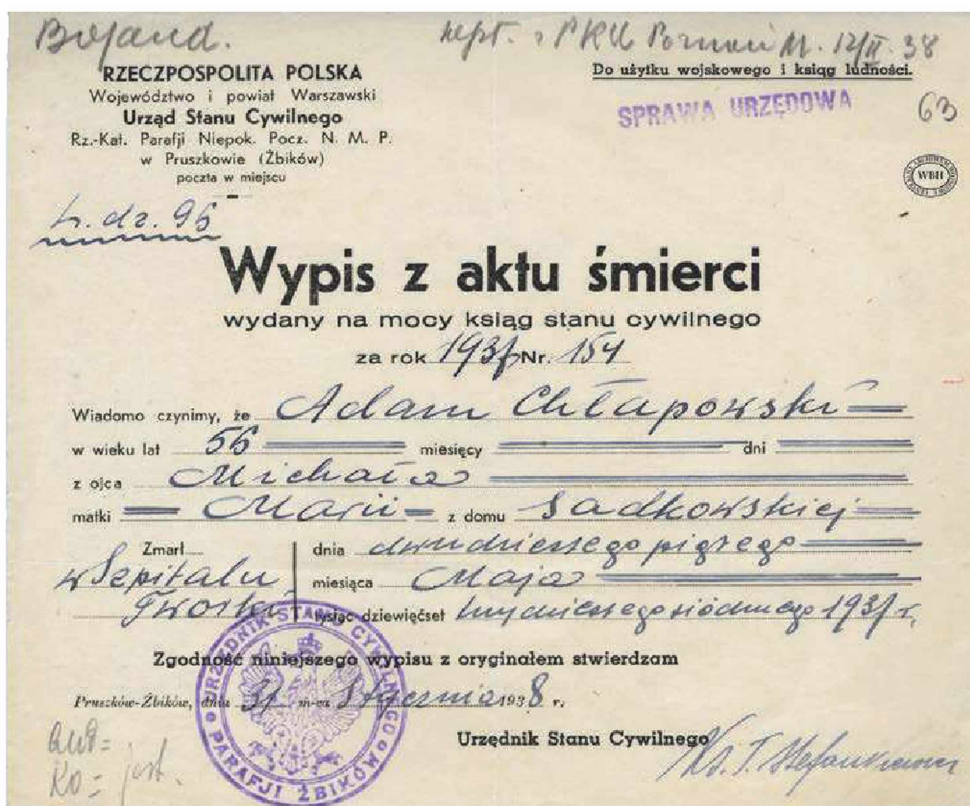 Bojand.
wpł. z PKU Poznań M. 12/II. 38
RZECZPOSPOLITA POLSKA
Województwo i powiat Warszawski
Urząd Stanu Cywilnego
Rz.-Kat. Parafji Niepok. Pocz. N. M. P.
w Pruszkowie (Żbików)
poczta w miejscu
Do użytku wojskowego i ksiąg ludności.
SPRAWA URZĘDOWA
63
WBH
L. dz. 96
Wypis z aktu śmierci
wydany na mocy ksiąg stanu cywilnego
za rok 1937 Nr. 154
Wiadomo czynimy, że Adam Chłapowski
w wieku lat 56 miesięcy dni
z ojca Michała
matki Marii z domu Sadkowskiej
Zmarł w Szpitalu Tworki
dnia dwudziestego piątego
miesiąca Maja
tysiąc dziewięćset trzydziestego siódmego 1937 r.
Zgodność niniejszego wypisu z oryginałem stwierdzam
Pruszków-Żbików, dnia 31 m-ca Stycznia 1938 r.
URZĘDNIK STANU CYWILNEGO
PARAFJI ŻBIKÓW
Urzędnik Stanu Cywilnego
Ks. T. Stefankiewicz